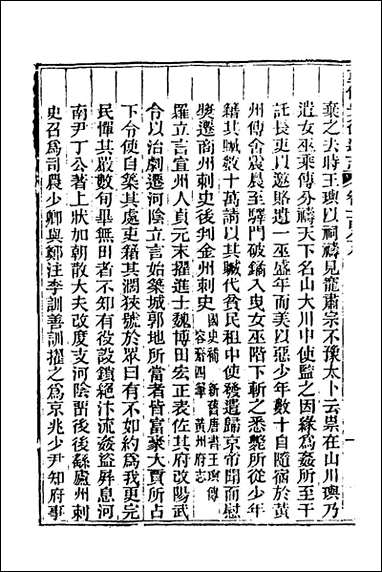 棄之去時王璵以祠禱見寵肅宗不豫太卜云祟在山川璵乃
遣女巫乘傳分禱天下名山大川中使監之因緣為姦所至干
託長吏以邀賂遺一巫盛年而美以惡少年數十自隨宿於黃
州傳舍震晨至驛門破鐍入曳女巫階下斬之悉斃所從少年
籍其贓數十萬請以其贓代貧民租中使發遣歸京帝聞而慰
獎遷商州刺史後判金州刺史 國史補 新舊唐書王璵傳 容齋四筆 黃州府志
羅立言宣州人貞元末擢進士魏博田宏正表佐其府改陽武
令以治劇遷河陰立言始築城郭地所當者皆富豪大賈所占
下令使自築其處吏籍其濶狹號於眾曰有不如約為我更完
民憚其嚴數旬畢無田者不知有役設鎖絕汴流姦盜屏息河
南尹丁公著上狀加朝散大夫改度支河陰留後後繇廬州刺
史召為司農少卿與鄭注李訓善訓擢之為京兆少尹知府事